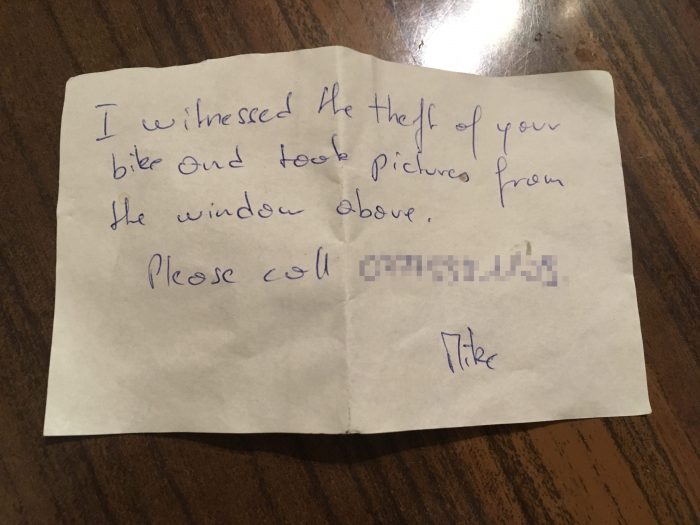 I witnessed the theft of your
bike and took pictures from
the window above.
Please call
Mike